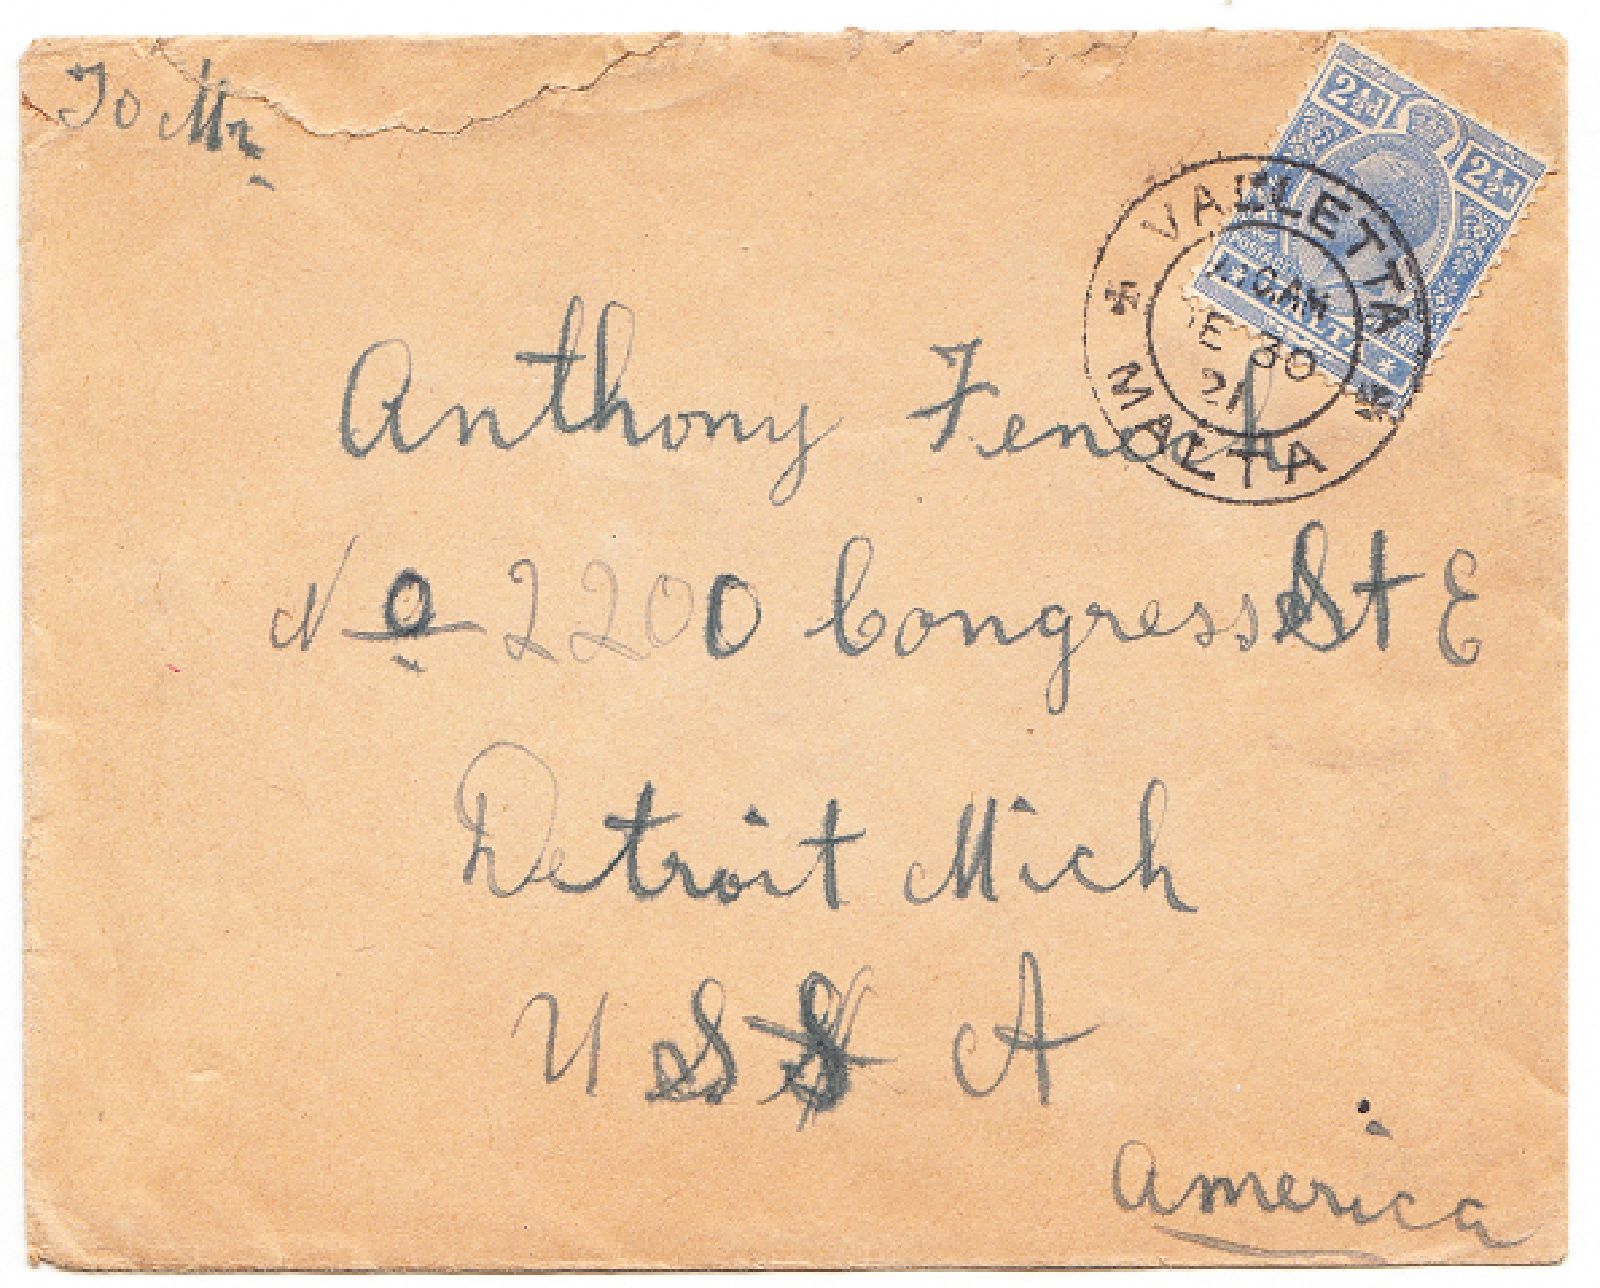 To Mr
2½d 2½d
VALLETTA
30
21
MALTA
Anthony Fenech
No 2200 Congress St E
Detroit Mich
U S A
America